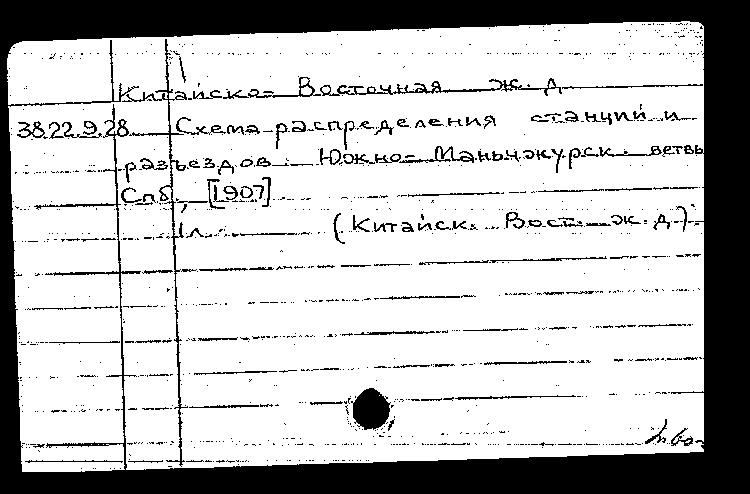 Китайско= Восточная ж. д
38.22.9.28 Схема распределения станций и
разъездов. Южно= Маньчжурск. ветвь
Спб., [1907]
1л. (Китайск. Вост. ж. д).